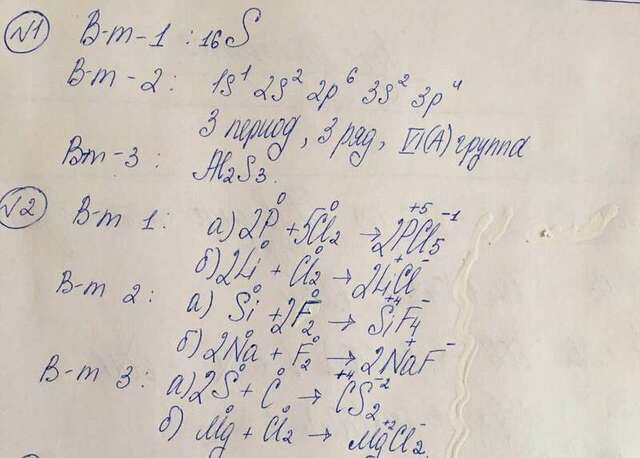 №1 В-т-1 : ₁₆S
В-т-2 : 1s¹ 2s² 2p⁶ 3s² 3p⁴
3 период, 3 ряд, VI(A) группа
Вт-3 : Al₂S₃.
№2 В-т 1: а) 2P⁰ + 5Cl₂⁰ → 2P⁺⁵Cl₅⁻¹
б) 2Li⁰ + Cl₂⁰ → 2Li⁺Cl⁻
В-т 2: а) Si⁰ + 2F₂⁰ → Si⁺⁴F₄⁻
б) 2Na⁰ + F₂⁰ → 2Na⁺F⁻
В-т 3: а) 2S⁰ + C⁰ → C⁺⁴S₂⁻²
б) Mg⁰ + Cl₂⁰ → Mg⁺²Cl₂⁻